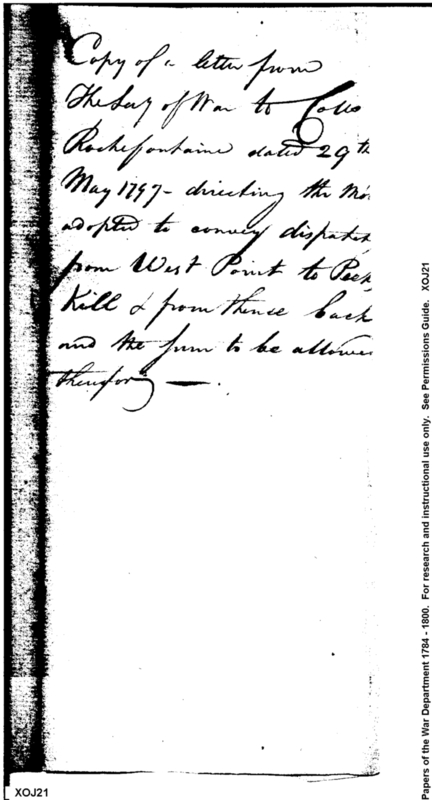 Copy of a letter from
The Secy of War to Collo
Rochefontaine dated 29th
May 1797 - directing the Mo
adopted to convey dispatch
from West Point to Peek
Kill & from thence back
and the sum to be allowed
therefor —.
XOJ21
Papers of the War Department 1784 - 1800. For research and instructional use only. See Permissions Guide. XOJ21